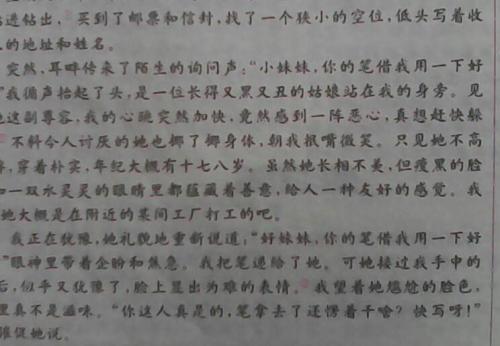 进钻出，买到了邮票和信封，找了一个狭小的空位，低头写着收
的地址和姓名。
突然，耳畔传来了陌生的询问声：“小妹妹，你的笔借我用一下好
”我循声抬起了头，是一位长得又黑又丑的姑娘站在我的身旁。见
这副尊容，我的心跳突然加快，竟然感到一阵恶心，真想赶快躲
不料令人讨厌的她也挪了挪身体，朝我抿嘴微笑。只见她不高
，穿着朴实，年纪大概有十七八岁。虽然她长相不美，但瘦黑的脸
一双水灵灵的眼睛里都蕴藏着善意，给人一种友好的感觉。我
她大概是在附近的某间工厂打工的吧。
我正在犹豫，她礼貌地重新说道：“好妹妹，你的笔借我用一下好
”眼神里带着企盼和焦急。我把笔递给了她。可她接过我手中的
后，似乎又犹豫了，脸上显出为难的表情。我望着她尴尬的脸色，
里真不是滋味。“你这人真是的，笔拿去了还愣着干啥？快写呀！”
催促她说。